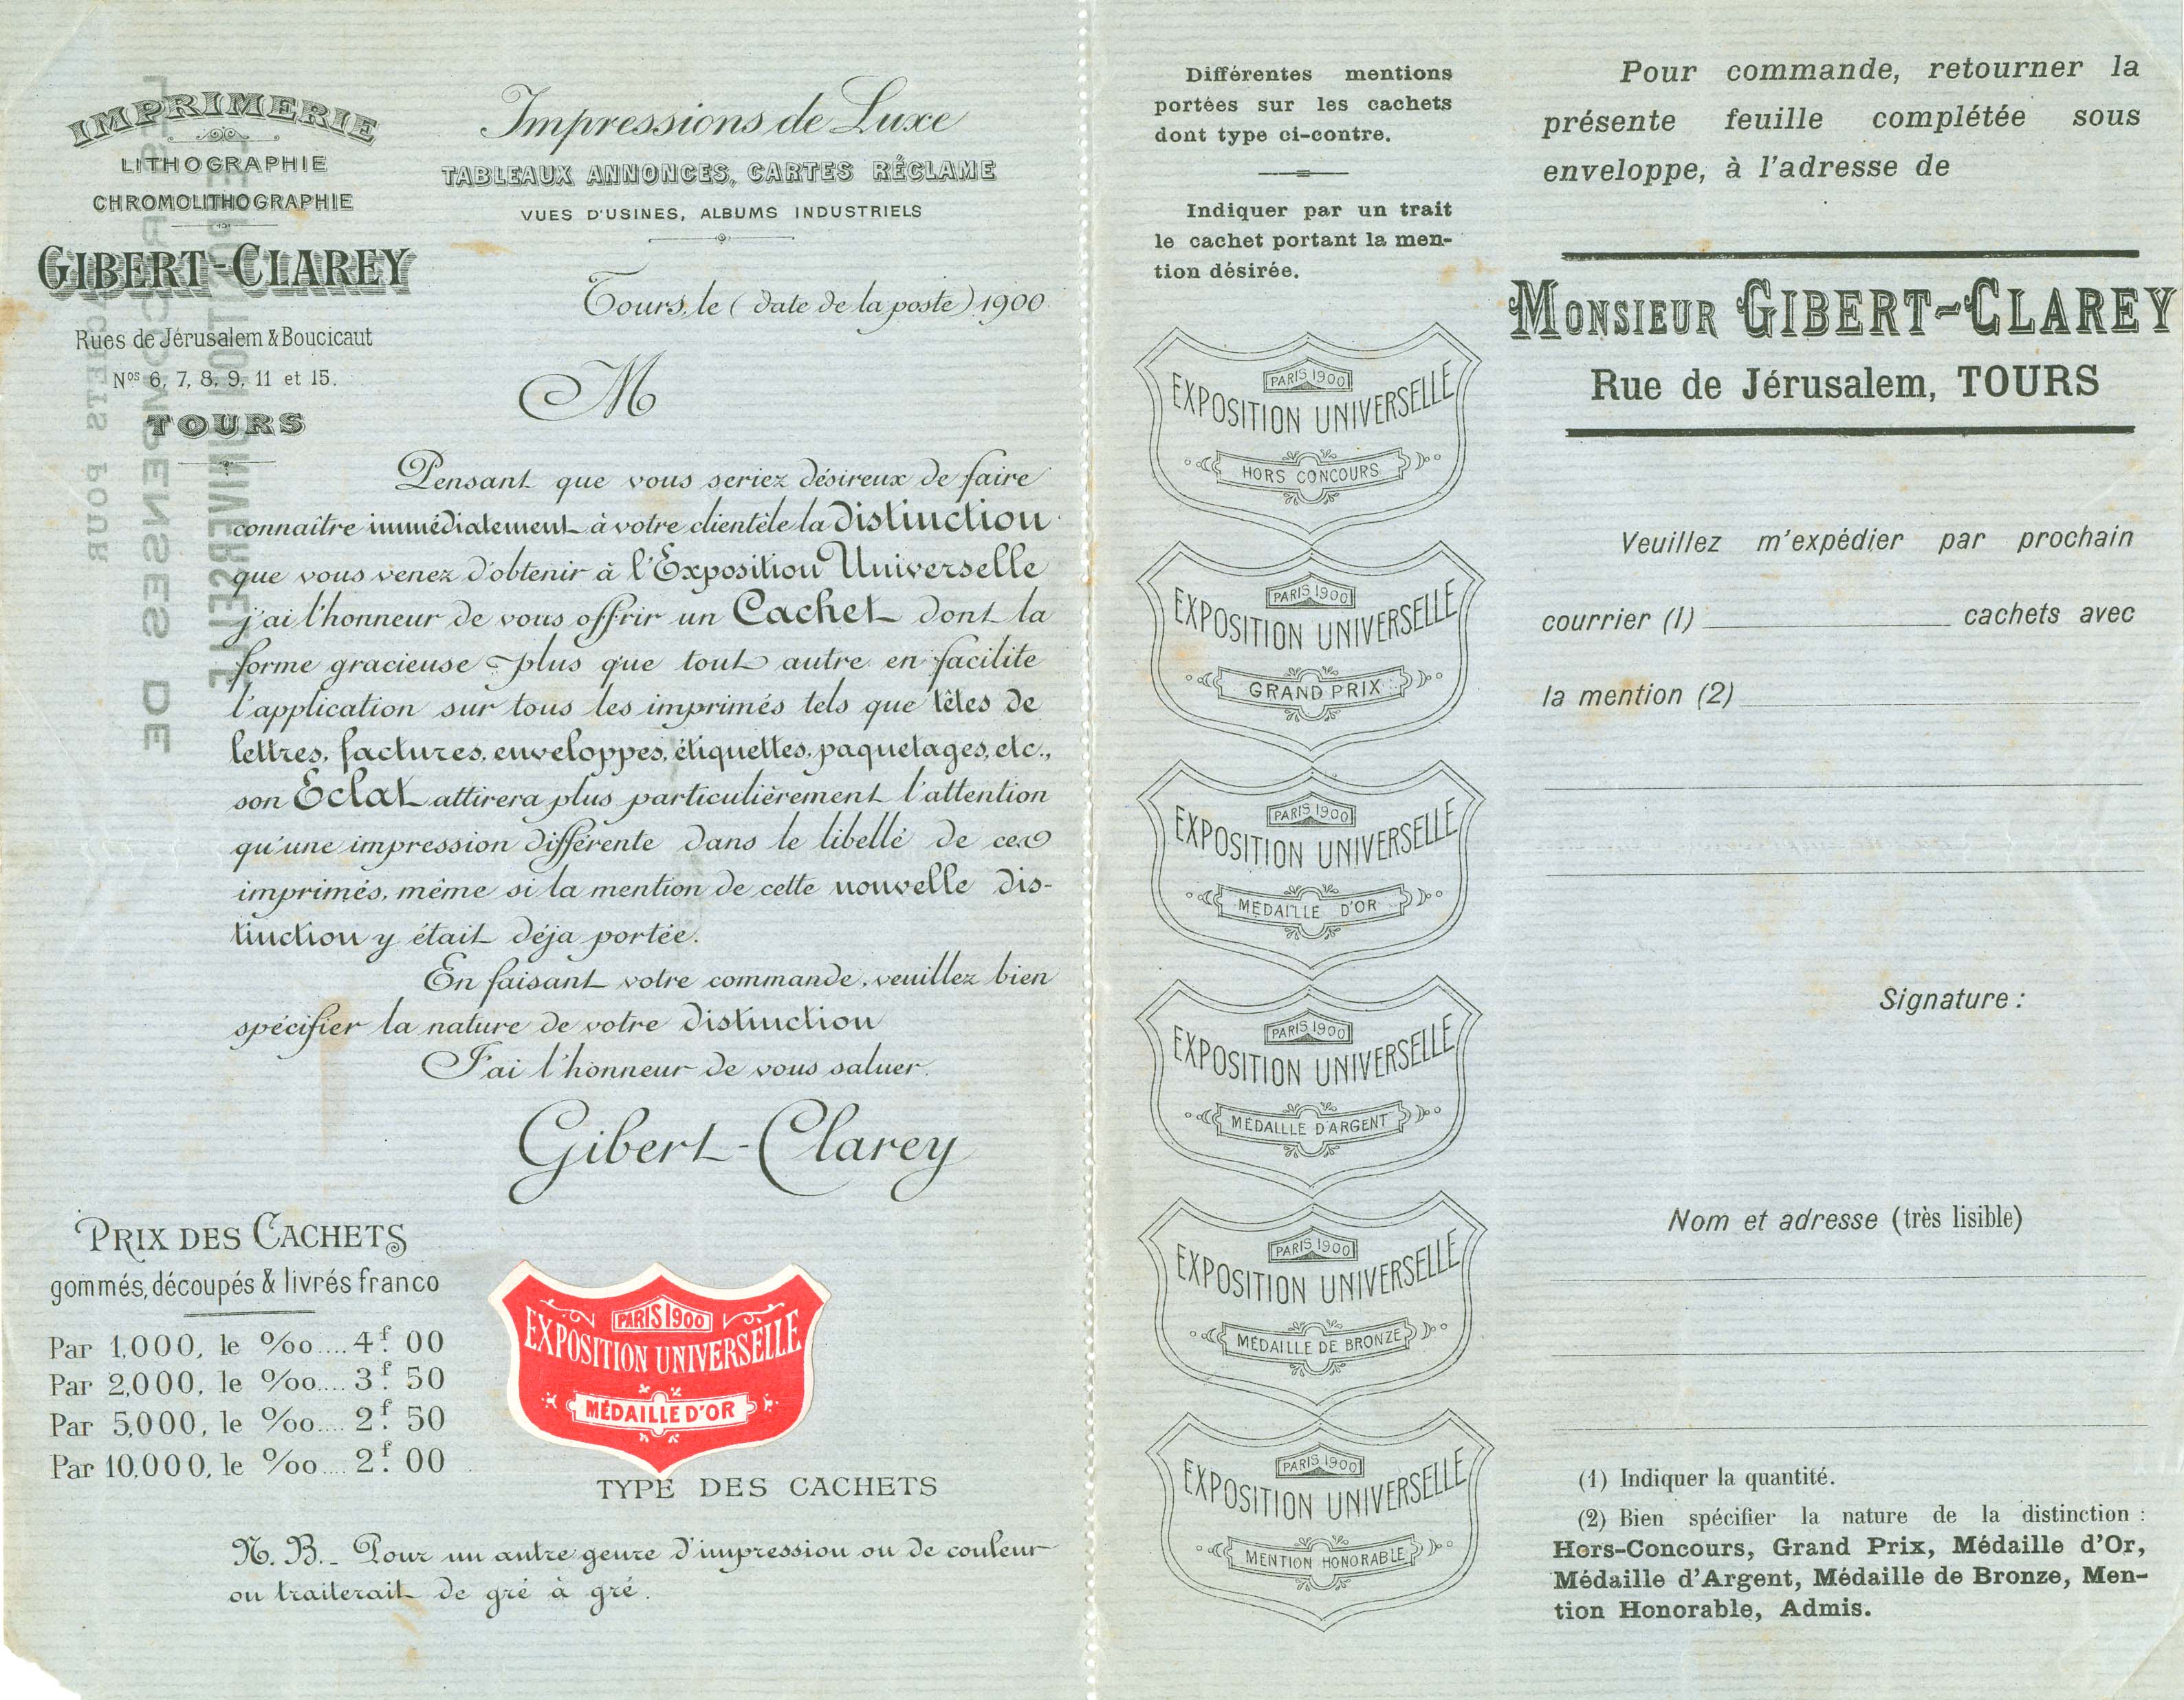 IMPRIMERIE
LITHOGRAPHIE
CHROMOLITHOGRAPHIE
GIBERT-CLAREY
Rues de Jérusalem & Boucicaut
Nos 6, 7, 8, 9, 11 et 15.
TOURS
Impressions de Luxe
TABLEAUX ANNONCES, CARTES RÉCLAME
VUES D'USINES, ALBUMS INDUSTRIELS
Tours, le (date de la poste) 1900
M
Pensant que vous seriez désireux de faire
connaître immédiatement à votre clientèle la Distinction
que vous venez d'obtenir à l'Exposition Universelle
j'ai l'honneur de vous offrir un Cachet dont la
forme gracieuse plus que tout autre en facilite
l'application sur tous les imprimés tels que têtes de
lettres, factures, enveloppes, étiquettes, paquetages, etc.,
son Eclat attirera plus particulièrement l'attention
qu'une impression différente dans le libellé de ces
imprimés, même si la mention de cette nouvelle dis-
tinction y était déja portée.
En faisant votre commande, veuillez bien
spécifier la nature de votre Distinction
J'ai l'honneur de vous saluer.
Gibert-Clarey
PRIX DES CACHETS
gommés, découpés & livrés franco
Par 1,000, le ‰.... 4f. 00
Par 2,000, le ‰.... 3f. 50
Par 5,000, le ‰.... 2f. 50
Par 10,000, le ‰.... 2f. 00
PARIS 1900
EXPOSITION UNIVERSELLE
MÉDAILLE D'OR
TYPE DES CACHETS
N. B._ Pour un autre genre d'impression ou de couleur
on traiterait de gré à gré.
Différentes mentions
portées sur les cachets
dont type ci-contre.
Indiquer par un trait
le cachet portant la men-
tion désirée.
PARIS 1900
EXPOSITION UNIVERSELLE
HORS CONCOURS
PARIS 1900
EXPOSITION UNIVERSELLE
GRAND PRIX
PARIS 1900
EXPOSITION UNIVERSELLE
MÉDAILLE D'OR
PARIS 1900
EXPOSITION UNIVERSELLE
MÉDAILLE D'ARGENT
PARIS 1900
EXPOSITION UNIVERSELLE
MÉDAILLE DE BRONZE
PARIS 1900
EXPOSITION UNIVERSELLE
MENTION HONORABLE
Pour commande, retourner la
présente feuille complétée sous
enveloppe, à l'adresse de
MONSIEUR GIBERT-CLAREY
Rue de Jérusalem, TOURS
Veuillez m'expédier par prochain
courrier (1) cachets avec
la mention (2)
Signature :
Nom et adresse (très lisible)
(1) Indiquer la quantité.
(2) Bien spécifier la nature de la distinction :
Hors-Concours, Grand Prix, Médaille d'Or,
Médaille d'Argent, Médaille de Bronze, Men-
tion Honorable, Admis.